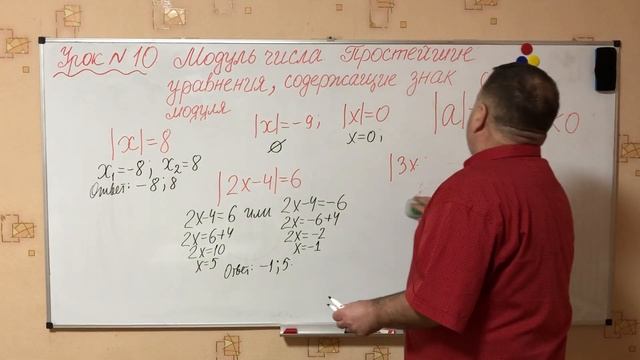 Урок N 10 Модуль числа Простейшие
уравнения, содержащие знак
модуля
|x|=8
x₁=-8; x₂=8
Ответ: -8; 8
|x|=-9;
∅
|x|=0
x=0;
|2x-4|=6
2x-4=6 или 2x-4=-6
2x=6+4
2x=10
x=5
2x=-6+4
2x=-2
x=-1
Ответ: -1; 5.
|a|
<0
|3x